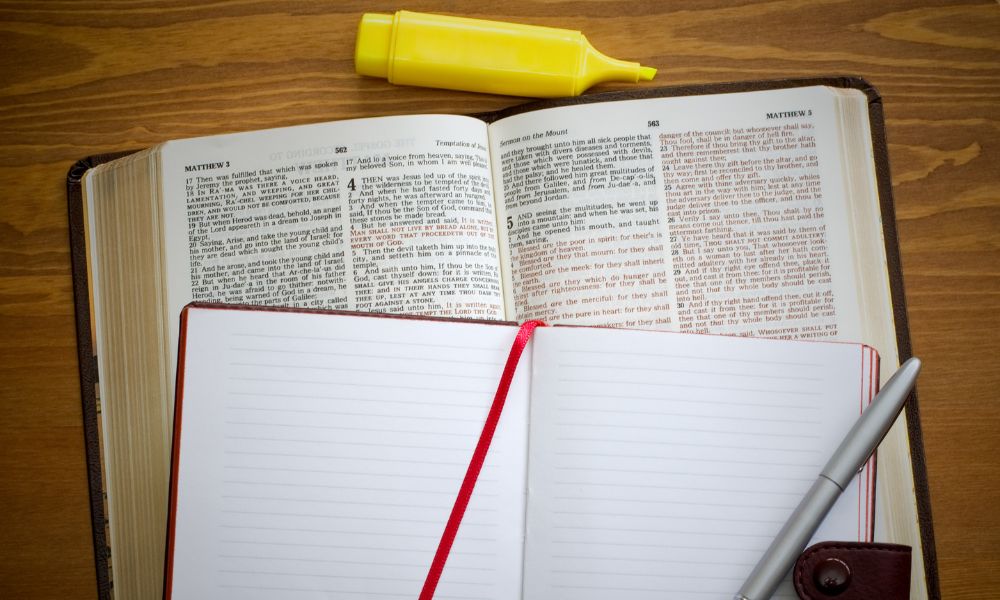 MATTHEW 3
562
Temptation of
17 Then was fulfilled that which was spoken
by Jeremy the prophet, saying,
18 IN RA-MA WAS THERE A VOICE HEARD,
LAMENTATION, AND WEEPING, AND GREAT
MOURNING, RA-CHEL WEEPING FOR HER CHIL-
DREN, AND WOULD NOT BE COMFORTED, BECAUSE
THEY ARE NOT.
19 But when Herod was dead, behold, an angel
of the Lord appeareth in a dream to Joseph in
Egypt,
20 Saying, Arise, and take the young child and
his mother, and go into the land of Israel: for
they are dead which sought the young child's
life.
21 And he arose, and took the young child and
his mother, and came into the land of Israel.
22 But when he heard that Ar-che-la-us did
reign in Ju-dae-a in the room of his father
Herod, he was afraid to go thither: notwith-
standing, being warned of God in a dream, he
turned aside into the parts of Galilee:
in a city called
17 And lo a voice from heaven, saying,
my beloved Son, in whom I am well
4 THEN was Jesus led up of the
the wilderness to be tempted of the devil.
2 And when he had fasted forty days and
forty nights, he was afterward an hungred.
3 And when the tempter came to him, he
said, If thou be the Son of God, command that
these stones be made bread.
4 But he answered and said, It is written,
MAN SHALL NOT LIVE BY BREAD ALONE, BUT BY
EVERY WORD THAT PROCEEDETH OUT OF THE
MOUTH OF GOD.
5 Then the devil taketh him up into the holy
city, and setteth him on a pinnacle of the
temple,
6 And saith unto him, If thou be the Son of
God, cast thyself down: for it is written, HE
SHALL GIVE HIS ANGELS CHARGE CONCERNING
THEE: AND IN THEIR HANDS THEY SHALL BEAR
THEE UP, LEST AT ANY TIME THOU DASH THY
FOOT AGAINST A STONE.
7 Jesus said unto him, It is written
TEMPT THE LORD THY GOD.
Sermon on the Mount
563
MATTHEW 5
and they brought unto him all sick people that
were taken with divers diseases and torments,
and those which were possessed with devils,
and those which were lunatick, and those that
had the palsy; and he healed them.
25 And there followed him great multitudes of
people from Galilee, and from De-cap-o-lis,
and from Jerusalem, and from Ju-dae-a, and
from beyond Jordan.
5 AND seeing the multitudes, he went up
into a mountain: and when he was set, his
disciples came unto him:
2 And he opened his mouth, and taught
them, saying,
Blessed are the poor in spirit: for their's is
the kingdom of heaven.
Blessed are they that mourn: for they shall
be comforted.
Blessed are the meek: for they shall inherit
the earth.
Blessed are they which do hunger and
thirst after righteousness: for they shall be
filled.
Blessed are the merciful: for they shall
obtain mercy.
are the pure in heart: for they shall
danger of the council: but whosoever shall say,
Thou fool, shall be in danger of hell fire.
23 Therefore if thou bring thy gift to the altar,
and there rememberest that thy brother hath
ought against thee;
24 Leave there thy gift before the altar, and go
thy way; first be reconciled to thy brother, and
then come and offer thy gift.
25 Agree with thine adversary quickly, whiles
thou art in the way with him; lest at any time
the adversary deliver thee to the judge, and the
judge deliver thee to the officer, and thou be
cast into prison.
26 Verily I say unto thee, Thou shalt by no
means come out thence, till thou hast paid the
uttermost farthing.
27 Ye have heard that it was said by them of
old time, THOU SHALT NOT COMMIT ADULTERY:
28 But I say unto you, That whosoever look-
eth on a woman to lust after her hath com-
mitted adultery with her already in his heart.
29 And if thy right eye offend thee, pluck it
out, and cast it from thee: for it is profitable for
thee that one of thy members should perish,
and not that thy whole body should be cast
into hell.
30 And if thy right hand offend thee, cut it off,
and cast it from thee: for it is profitable for
thee that one of thy members should perish,
and not that thy whole body should be cast
said, WHOSOEVER SHALL PUT
HER A WRITING OF